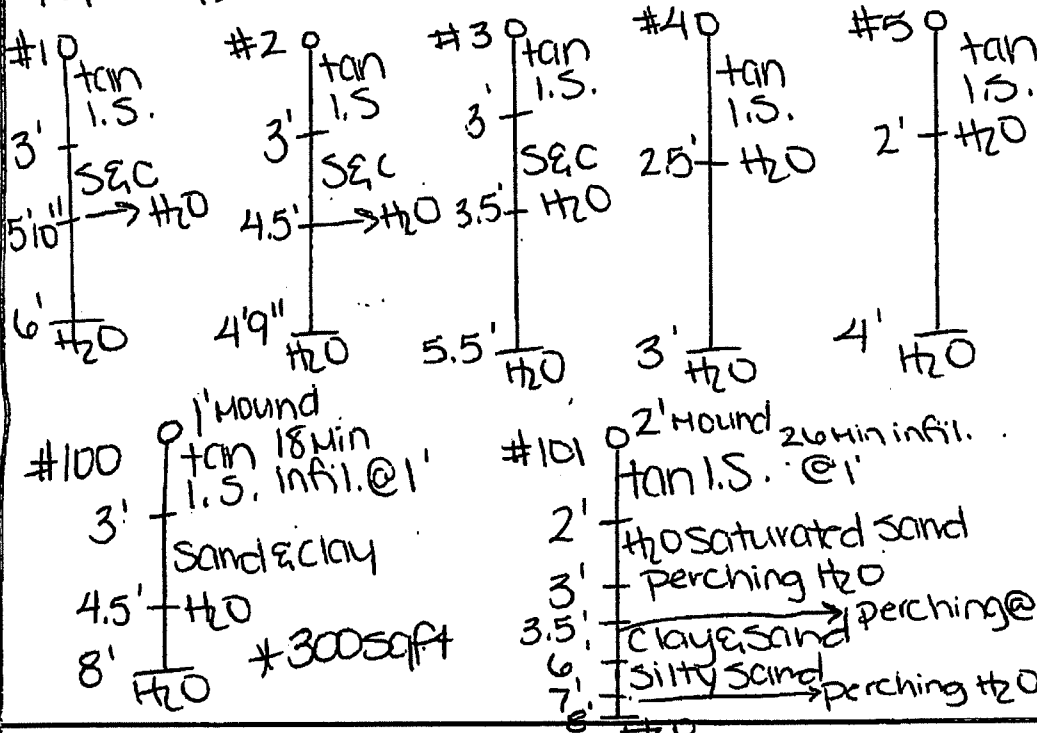 #1
tan
I.S.
3'
S&C
5'10" → H2O
6'
H2O
#2
tan
I.S
3'
S&C
4.5' → H2O
4'9"
H2O
#3
tan
I.S.
3'
S&C
3.5' H2O
5.5'
H2O
#4
tan
I.S.
2.5' H2O
3'
H2O
#5
tan
I.S.
2' H2O
4'
H2O
#100
1' Mound
tan 18 Min
I.S. infil. @ 1'
3'
Sand & Clay
4.5' H2O
8'
H2O
*300 sqft
#101
2' Mound 26 Min infil.
tan I.S. @ 1'
2'
H2O saturated sand
3' perching H2O
3.5' → perching @
clay & sand
6'
silty sand
7' → perching H2O
8'
H2O